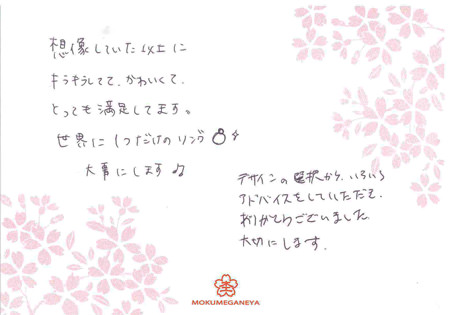 想像していた以上に
キラキラしてて、かわいくて、
とっても満足してます。
世界に1つだけのリング
大事にします♪
デザインの選択から、いろいろ
アドバイスをしていただいて、
ありがとうございました。
大切にします。
MOKUMEGANEYA